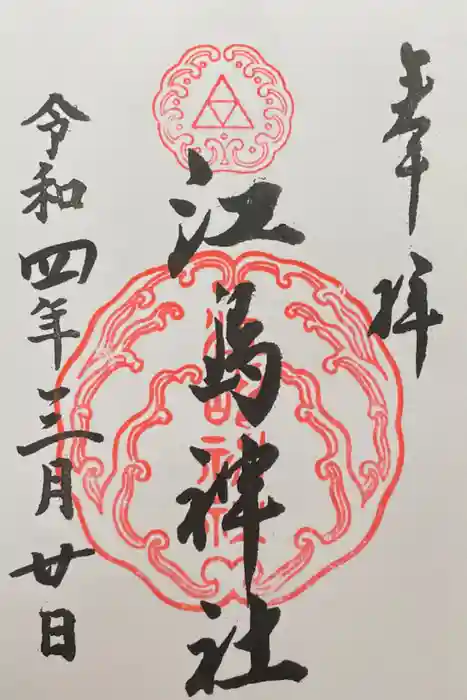 奉拝
江島神社
令和四年三月廿日